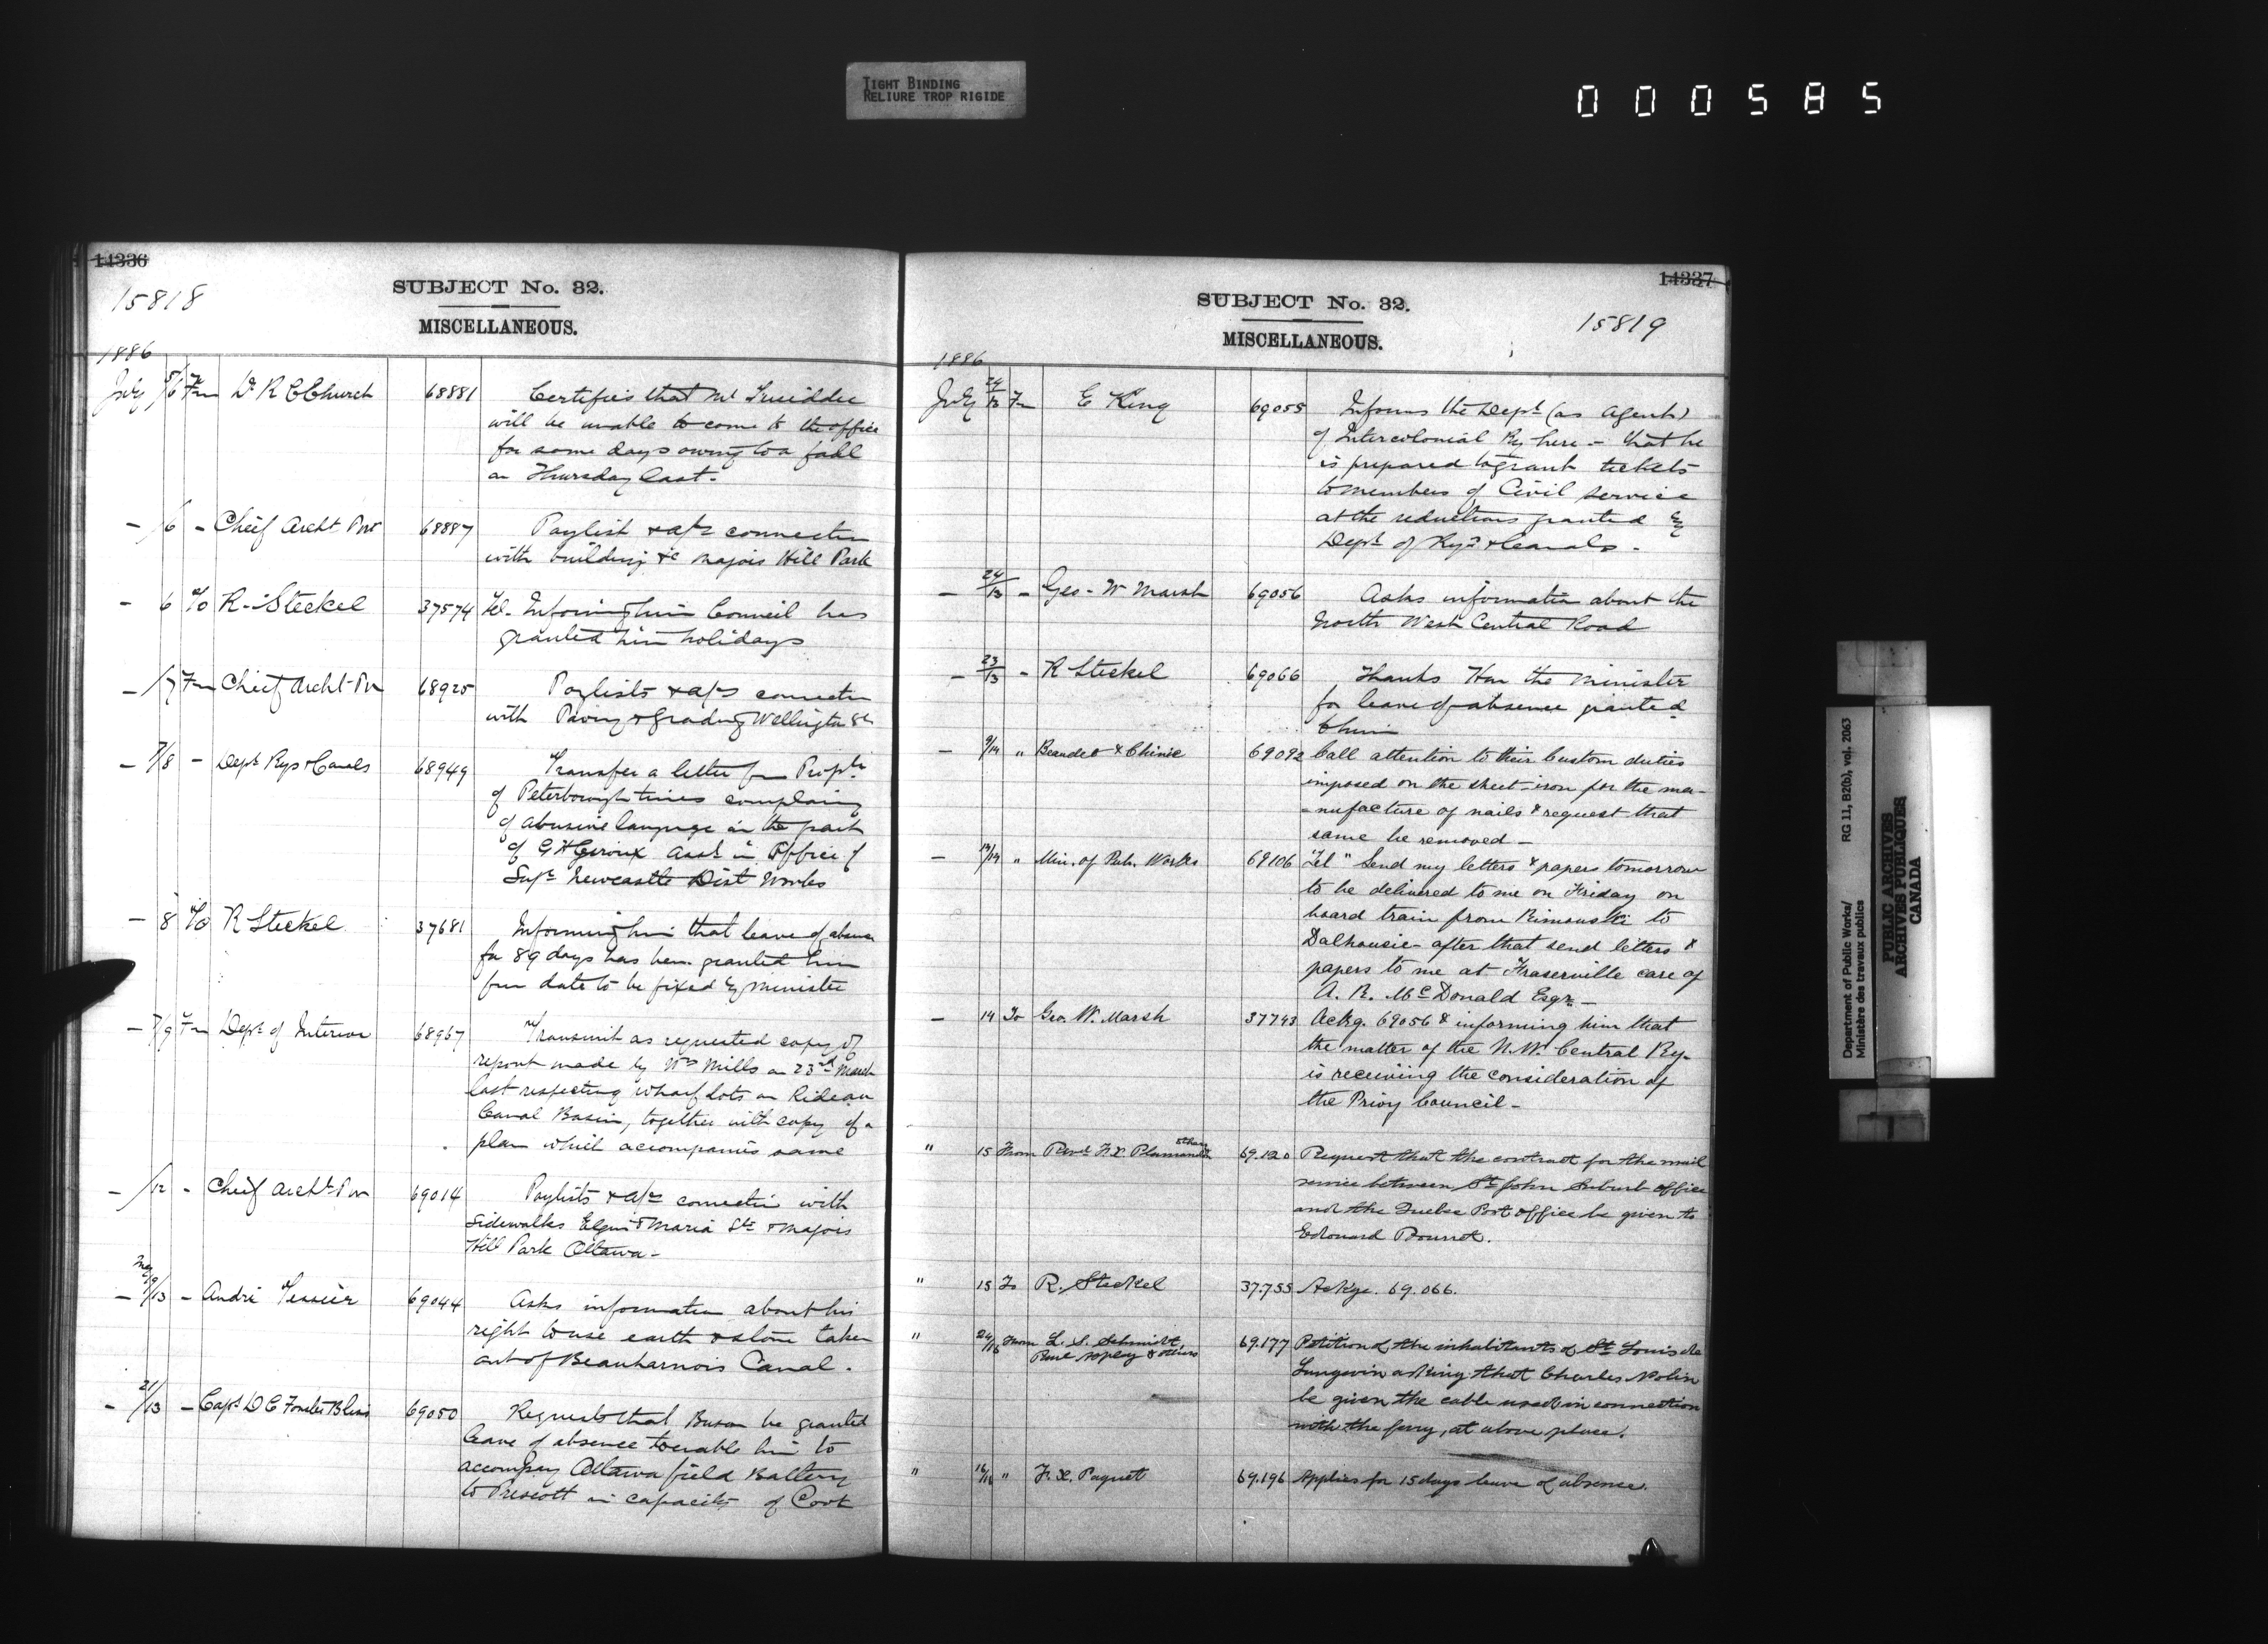 TIGHT BINDING
RELIURE TROP RIGIDE
000585
14336
15818
SUBJECT No. 32.
MISCELLANEOUS.
1886
July 5/6 Fm Dr R C Church 68881 Certifies that Mr
will be unable to come to the office
for some days owing to a fall
on Thursday last.
— /6 - Cheif Archt PW 68887 Paylist & a/cs connection
with building &c Majors Hill Park
— 6 To R. Steckel 37574 Tel. Informing him Council has
granted him holidays
— /7 Fm Cheif Archt PW 68925 Paylists & a/cs connectn
with Paving & Grading Wellington St
— 7/8 - Dept Rys & Canals 68949 Transfer a letter fm Proptr
of Peterborough times complaing
of abusive language on the part
of G H Giroux Asst in Office of
Supt Newcastle Dist Works
— 8 To R Steckel 37681 Informing him that leave of absence
for 89 days has been granted him
from date to be fixed by Minister
— 7/9 Fm Dept of Interior 68967 Transmit as requested copy of
report made by Wm Mills on 23rd March
last respecting Wharf Lots on Rideau
Canal Basin, together with copy of a
plan which accompanies same
— /12 - Cheif Archt PW 69014 Paylists & a/cs connectn with
sidewalks Elgin & Maria Sts & Majors
Hill Park Ottawa -
— /13 - André Tessier 69044 Asks information about his
right to use earth & stone taken
out of Beauharnois Canal.
— 21/13 - Capt D C Forster Bliss 69050 Requests that be granted
leave of absence to enable him to
accompany Ottawa field Battery
to Prescott in capacity of Cook
14337
SUBJECT No. 32.
15819
MISCELLANEOUS.
1886
July 24/13 Fm E King 69055 Informs the Dept (as Agent)
of Intercolonial Ry here - that he
is prepared to grant tickets
to members of Civil Service
at the reductions granted by
Dept of Rys & Canals -
— 24/13 - Geo. W Marsh 69056 Asks information about the
North West Central Road
— 23/13 - R Steckel 69066 Thanks Hon the Minister
for leave of absence granted
to him
— 9/14 " Beaudet & Chinic 69092 Call attention to their Custom duties
imposed on the sheet-iron for the ma-
-nufacture of nails & request that
same be removed -
— 14/14 " Min. of Pub. Works 69106 "Tel" Send my letters & papers tomorrow
to be delivered to me on Friday on
board train from Rimouski to
Dalhousie - after that send letters &
papers to me at Fraserville care of
A. R. McDonald Esqr. -
— 14 To Geo. W. Marsh 37743 Ackg. 69056 & informing him that
the matter of the N.W. Central Ry.
is receiving the consideration of
the Privy Council -
" 15 From Revd F.X. Plamondon & others 69.120 Request that the contract for the mail
service between St John Suburb office
and the Quebec Post office be given to
Edouard
" 15 To R. Steckel 37.755 Ackge. 69.066.
" 24/16 From L. S. Schmidt, & others 69.177 Petition of the inhabitants of St Louis de
Langevin asking that Charles Nolin
be given the cable used in connection
with the ferry, at above place.
" 16/16 " F. X. Paquet 69.196 Applies for 15 days leave of absence.
Department of Public Works/ RG 11, B2(b), vol. 2063
Ministère des travaux publics
PUBLIC ARCHIVES
ARCHIVES PUBLIQUES
CANADA